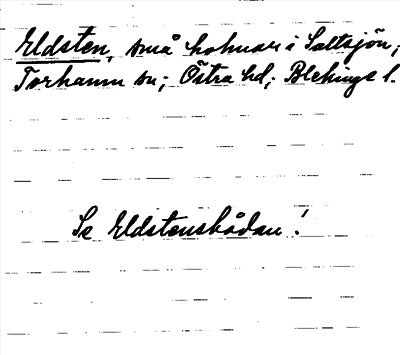 Eldsten, små holmar i Saltsjön,
Torhamn sn; Östra hd; Blekinge l.
Se Eldstenskådan!